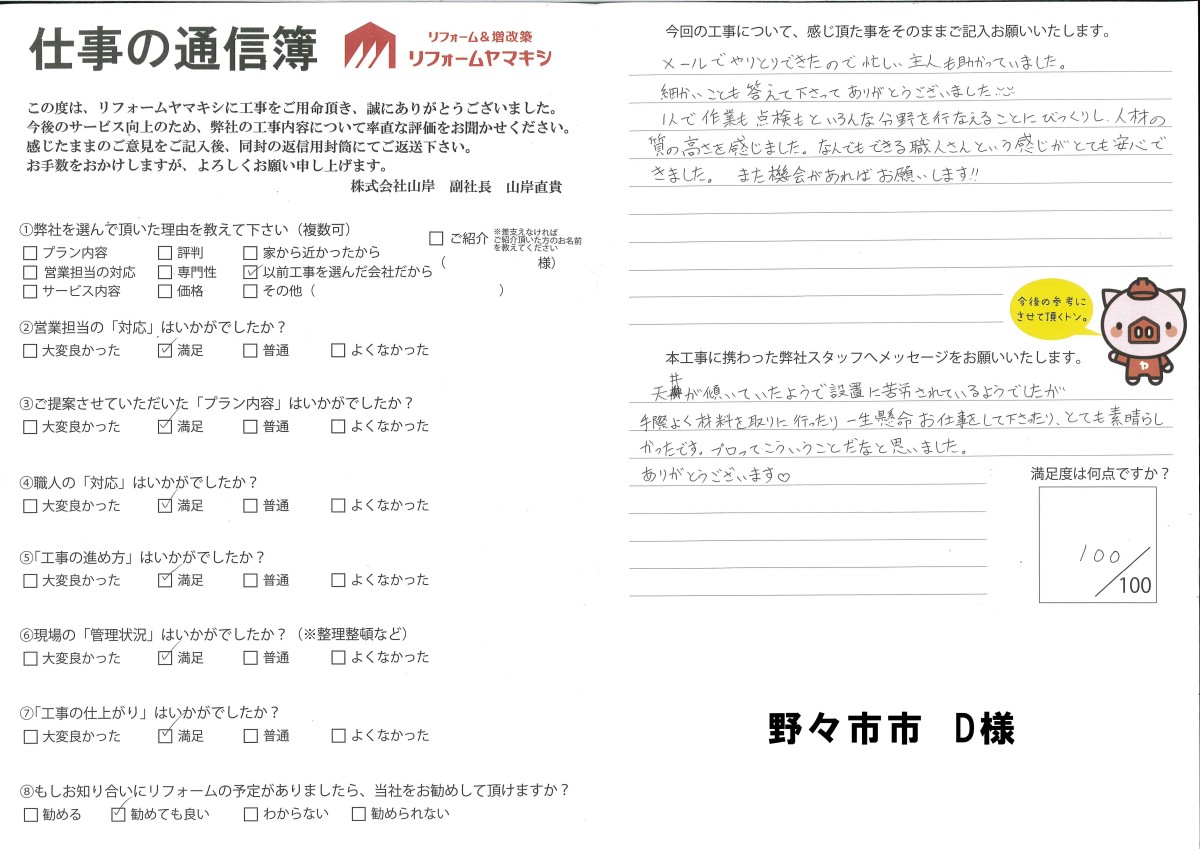 仕事の通信簿
リフォーム&増改築
リフォームヤマキシ
この度は、リフォームヤマキシに工事をご用命頂き、誠にありがとうございました。
今後のサービス向上のため、弊社の工事内容について率直な評価をお聞かせください。
感じたままのご意見をご記入後、同封の返信用封筒にてご返送下さい。
お手数をおかけしますが、よろしくお願い申し上げます。
株式会社山岸 副社長 山岸直貴
①弊社を選んで頂いた理由を教えて下さい(複数可)
□ プラン内容 □ 評判 □ 家から近かったから
□ 営業担当の対応 □ 専門性 ☑ 以前工事を選んだ会社だから
□ サービス内容 □ 価格 □ その他( )
□ ご紹介 ※差支えなければ
ご紹介頂いた方のお名前
を教えてください
( 様)
②営業担当の「対応」はいかがでしたか?
□ 大変良かった ☑ 満足 □ 普通 □ よくなかった
③ご提案させていただいた「プラン内容」はいかがでしたか?
□ 大変良かった ☑ 満足 □ 普通 □ よくなかった
④職人の「対応」はいかがでしたか?
□ 大変良かった ☑ 満足 □ 普通 □ よくなかった
⑤「工事の進め方」はいかがでしたか?
□ 大変良かった ☑ 満足 □ 普通 □ よくなかった
⑥現場の「管理状況」はいかがでしたか?(※整理整頓など)
□ 大変良かった ☑ 満足 □ 普通 □ よくなかった
⑦「工事の仕上がり」はいかがでしたか?
□ 大変良かった ☑ 満足 □ 普通 □ よくなかった
⑧もしお知り合いにリフォームの予定がありましたら、当社をお勧めして頂けますか?
□ 勧める ☑ 勧めても良い □ わからない □ 勧められない
今回の工事について、感じ頂た事をそのままご記入お願いいたします。
メールでやりとりできたので忙しい主人も助かっていました。
細かいことも答えて下さってありがとうございました
1人で作業も点検もといろんな分野を行なえることにびっくりし、人材の
質の高さを感じました。なんでもできる職人さんという感じがとても安心で
きました。 また機会があればお願いします!!
今後の参考に
させて頂くトン。
ヤ
本工事に携わった弊社スタッフへメッセージをお願いいたします。
天井が傾いていたようで設置に苦労されているようでしたが
手際よく材料を取りに行ったり一生懸命お仕事をして下さったり、とても素晴らし
かったです。プロってこういうことだなと思いました。
ありがとうございます♡
満足度は何点ですか?
100/100
野々市市 D様